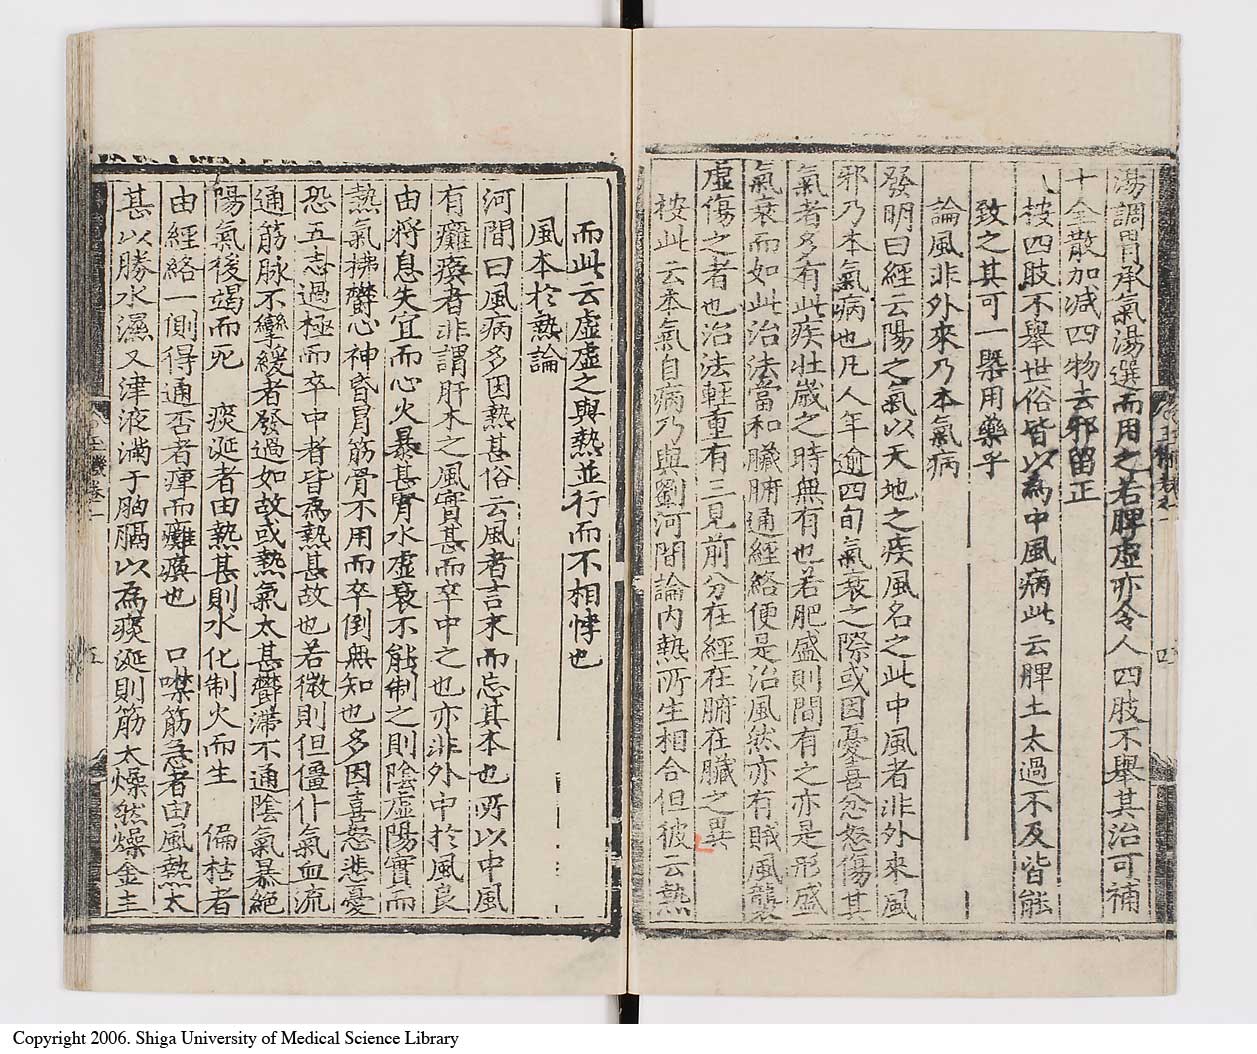 湯調胃承氣湯選而用之若脾虛亦令人四肢不舉其治可補
十全散加减四物去邪留正
按四肢不舉世俗皆以為中風病此云脾土太過不及皆能
致之其可一槩用藥乎
論風非外來乃本氣病
發明曰經云陽之氣以天地之疾風名之此中風者非外來風
邪乃本氣病也凡人年逾四旬氣衰之際或因憂喜忿怒傷其
氣者多有此疾壯歲之時無有也若肥盛則間有之亦是形盛
氣衰而如此治法當和臟腑通經絡便是治風然亦有賊風襲
虛傷之者也治法輕重有三見前分在經在腑在臟之異
按此云本氣自病乃與劉河間論内熱所生相合但彼云熱
而此云虛虛之與熱並行而不相悖也
風本於熱論
河間曰風病多因熱甚俗云風者言末而忘其本也所以中風
有癱瘓者非謂肝木之風實甚而卒中之也亦非外中於風良
由將息失宜而心火暴甚腎水虛衰不能制之則陰虛陽實而
熱氣拂欝心神昏冒筋骨不用而卒倒無知也多因喜怒悲憂
恐五志過極而卒中者皆為熱甚故也若微則但僵仆氣血流
通筋脉不攣緩者發過如故或熱氣太甚欝滯不通陰氣暴絕
陽氣後竭而死 痰涎者由熱甚則水化制火而生 偏枯者
由經絡一側得通否者痺而癱瘓也 口噤筋急者由風熱太
甚以勝水濕又津液滿于胸膈以為痰涎則筋太燥然燥金主
五
四
Copyright 2006. Shiga University of Medical Science Library